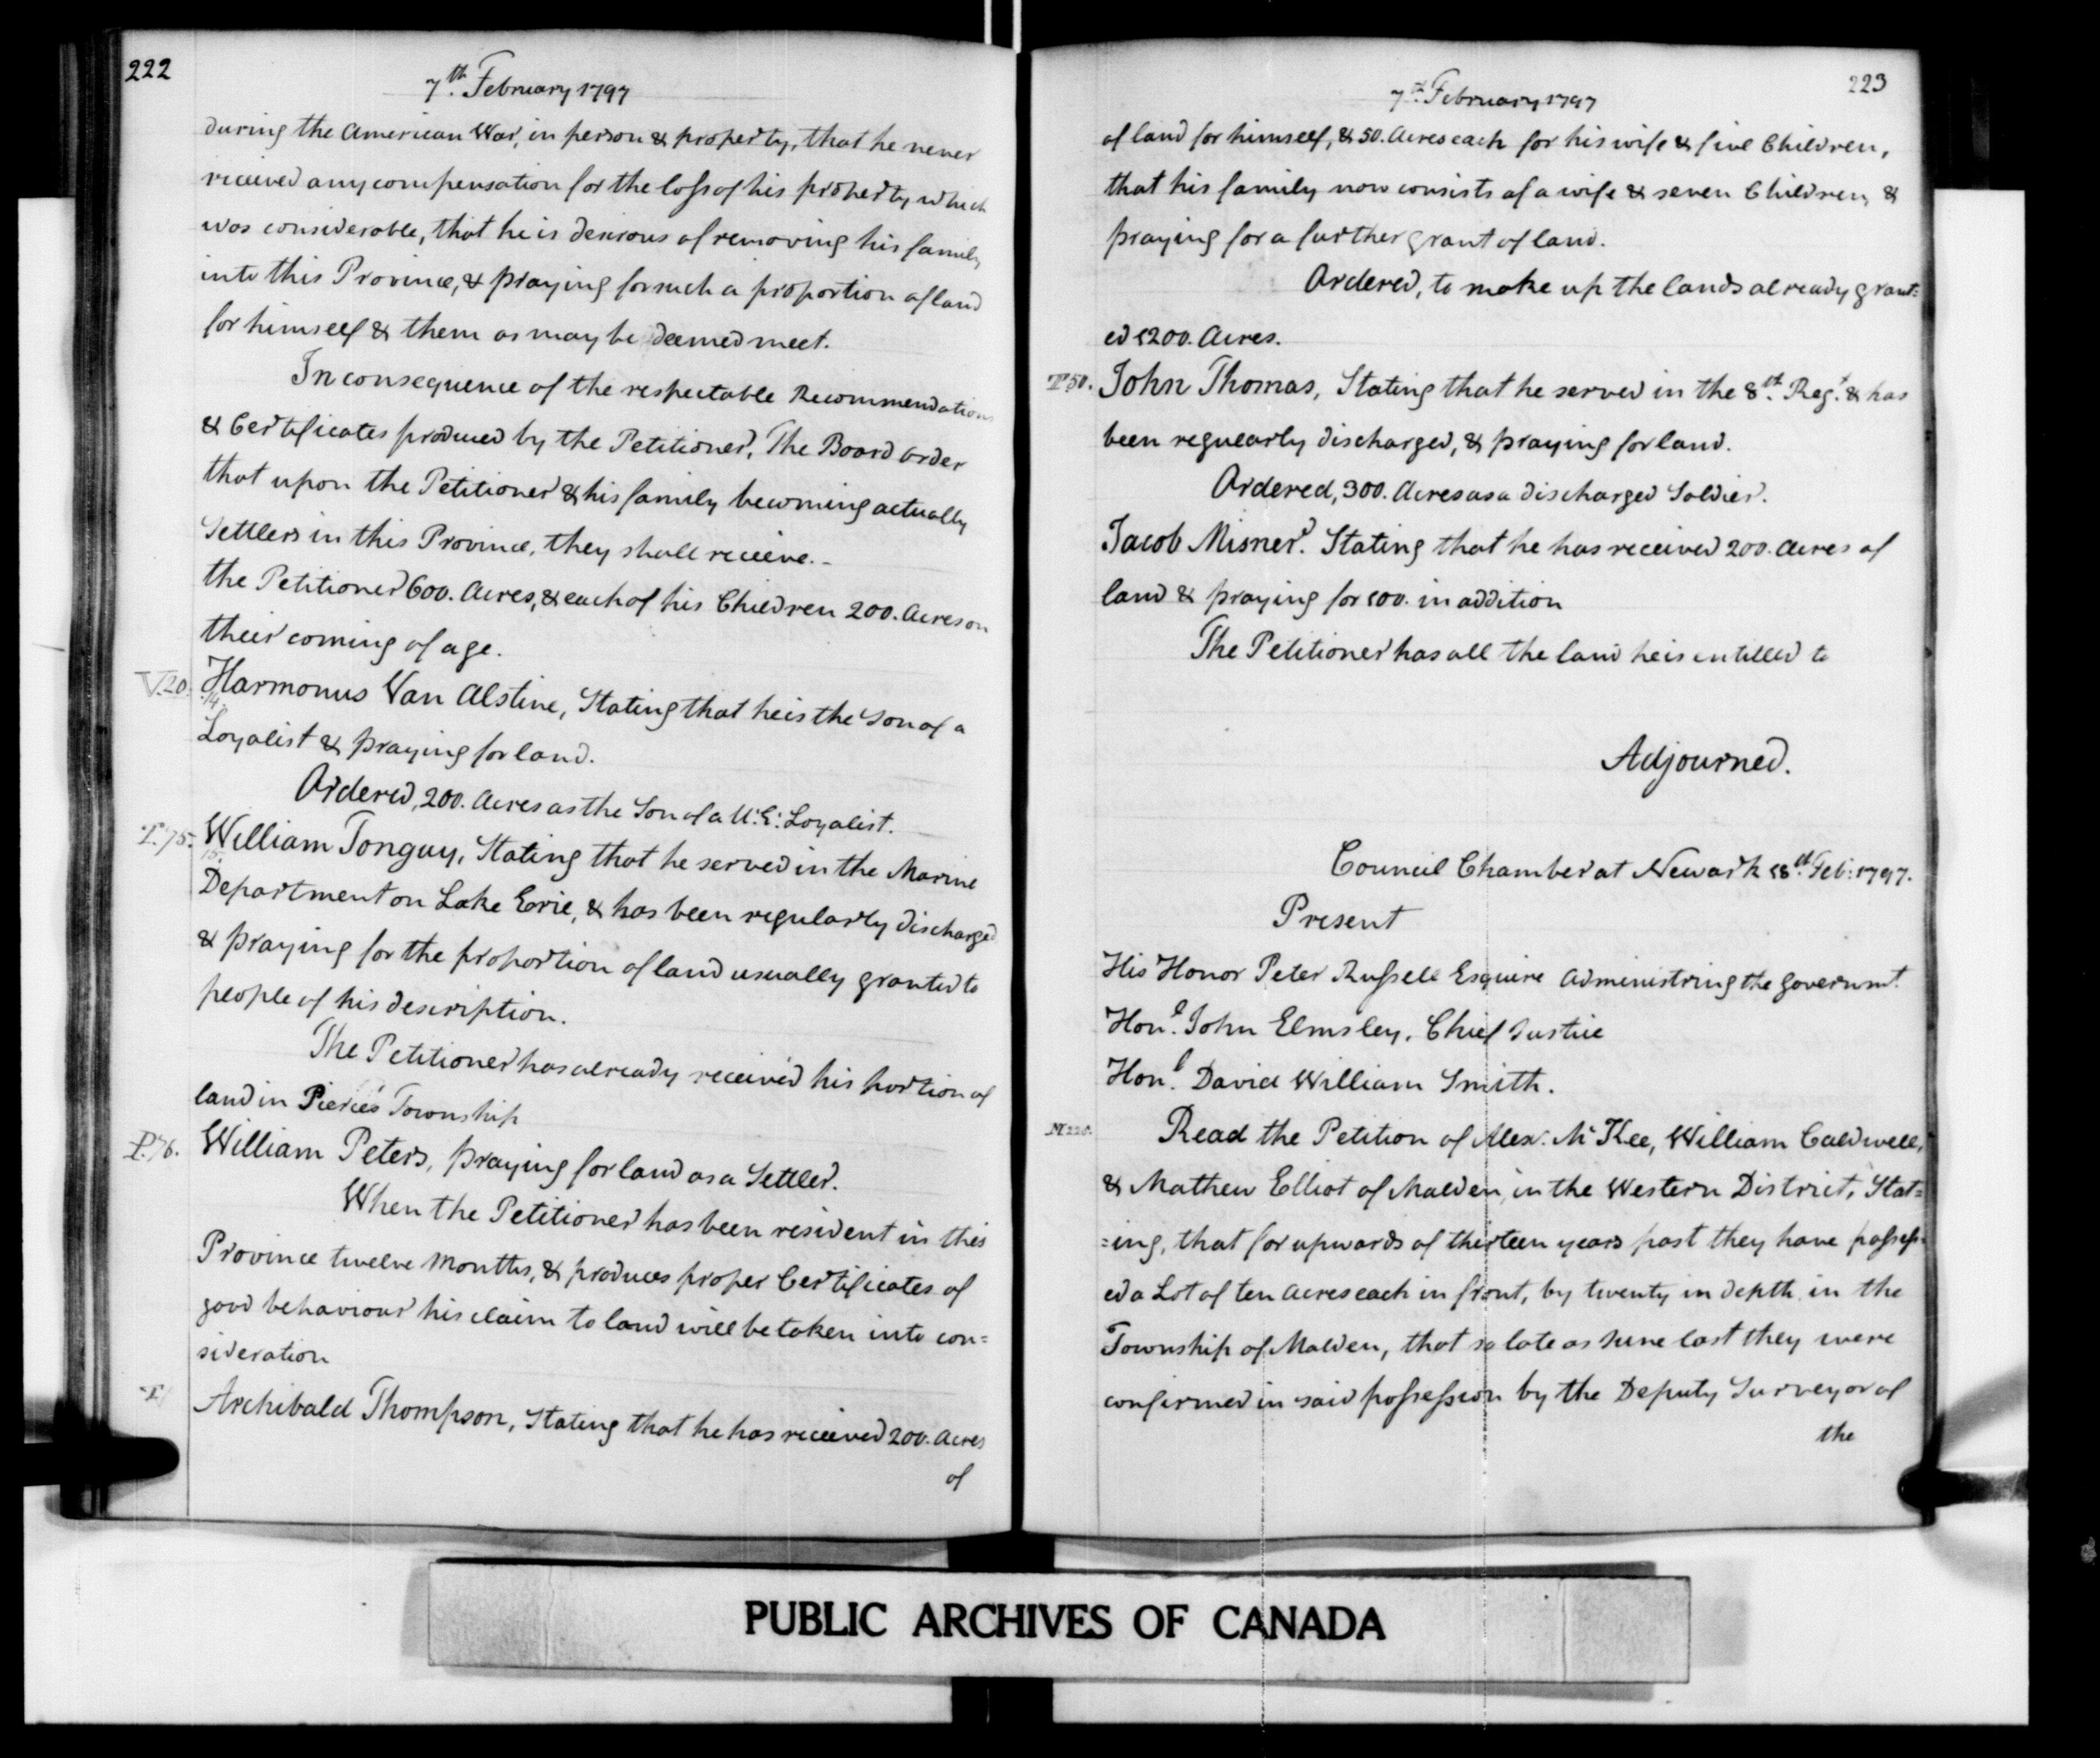 222
7th. February 1797
during the American War, in person & property, that he never
received any compensation for the loss of his property which
was considerable, that he is desirous of removing his family
into this Province, & praying for such a proportion of land
for himself & them as may be deemed meet.
In consequence of the respectable Recommendations
& Certificates produced by the Petitioner, The Board order
that upon the Petitioner & his family becoming actually
Settlers in this Province, they shall receive.-
the Petitioner 600. Acres, & each of his Children 200. Acres on
their coming of age.
V.20. Harmonus Van Alstine, Stating that he is the Son of a
14.
Loyalist & praying for land.
Ordered, 200. Acres as the Son of a U:E: Loyalist.
T.75. William Tonguy, Stating that he served in the Marine
15.
Department on Lake Erie, & has been regularly discharged
& praying for the proportion of land usually granted to
people of his description.
The Petitioner has already received his portion of
land in Pierie's Township
P.76. William Peters, praying for land as a Settler.
When the Petitioner has been resident in this
Province twelve Months, & produces proper Certificates of
good behaviour his claim to land will be taken into con=
sideration
T. Archibald Thompson, Stating that he has received 200. Acres
of
223
7th. February 1797
of land for himself, & 50. Acres each for his wife & five Children,
that his family now consists of a wife & seven Children, &
praying for a further grant of land.
Ordered, to make up the lands already grant=
ed 1200. Acres.
T 50. John Thomas, Stating that he served in the 8th. Regt. & has
been regularly discharged, & praying for land.
Ordered, 300. Acres as a discharged Soldier.
Jacob Misner. Stating that he has received 200. Acres of
land & praying for 100. in addition
The Petitioner has all the land he is entitled to
Adjourned.
Council Chamber at Newark 18th. Feb: 1797.
Present
His Honor Peter Russell Esquire Administring the Governmt.
Honl. John Elmsley, Chief Justice
Honl. David William Smith.
M 220. Read the Petition of Alexr. Mc Kee, William Caldwell,
& Mathew Elliot of Malden, in the Western District, Stat=
=ing, that for upwards of thirteen years past they have possess=
ed a Lot of ten Acres each in front, by twenty in depth in the
Township of Malden, that so late as June last they were
confirmed in said possession by the Deputy Surveyor of
the
PUBLIC ARCHIVES OF CANADA